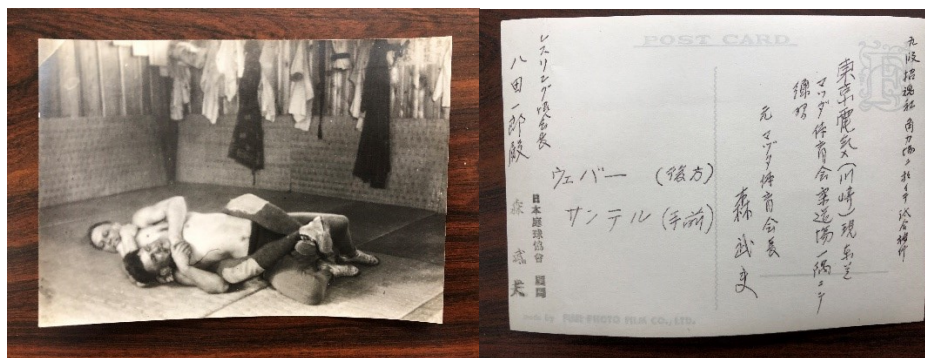 POST CARD
九段招魂社 角力場ニ於イテ試合挙行
東京電気(川崎)現東芝
マツダ体育会柔道場一隅ニテ
練習
元 マツダ体育会長
森 武夫
ウェバー (後方)
サンテル (手前)
レスリング協会長
八田一郎殿
日本庭球協会 顧問
森 武夫
Made by FUJI PHOTO FILM CO., LTD.